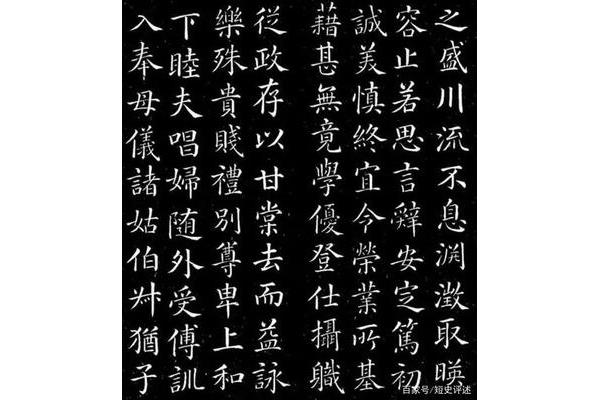 之盛川流不息渊澂取暎
容止若思言辤安定篤初
誠美慎終宜令榮業所基
藉甚無竟學優登仕攝職
從政存以甘棠去而益詠
樂殊貴賤禮別尊卑上和
下睦夫唱婦随外受傅訓
入奉母儀諸姑伯叔猶子
百家号/短史评述